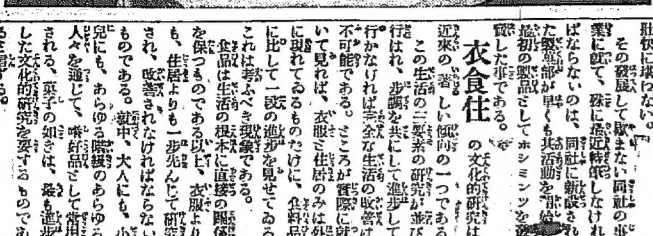 壯快に堪わない。
その發展して歇まない同社の事
業に就て、殊に最近特筆しなけれ
ばならないのは、同社に新設され
た製菓部が早くも其活動を開始
最初の製品としてホシミンツを
賣した事である。
衣食住
の文化的研究は
近來の著しい傾向の一つである
この生活の三要素の研究が並び
行はれ、步調を共にして進步して
行かなければ完全な生活の改善は
不可能である。ところが實際に就
いて見れば、衣服と住居のみは外
に現れてゐるものだけに、食料品
に比して一段の進步を見せてゐる
これは考ふべき現象である。
食品は生活の根本に直接の關係
を保つものである以上、衣服より
も、住居よりも一步先んじて研究
され、改善されなければならない
ものである。就中、大人にも、小
兒にも、あらゆる階級のあらゆる
人々を通じて、嗜好品として常用
される、菓子の如きは、最も進步
した文化的研究を要するものであ